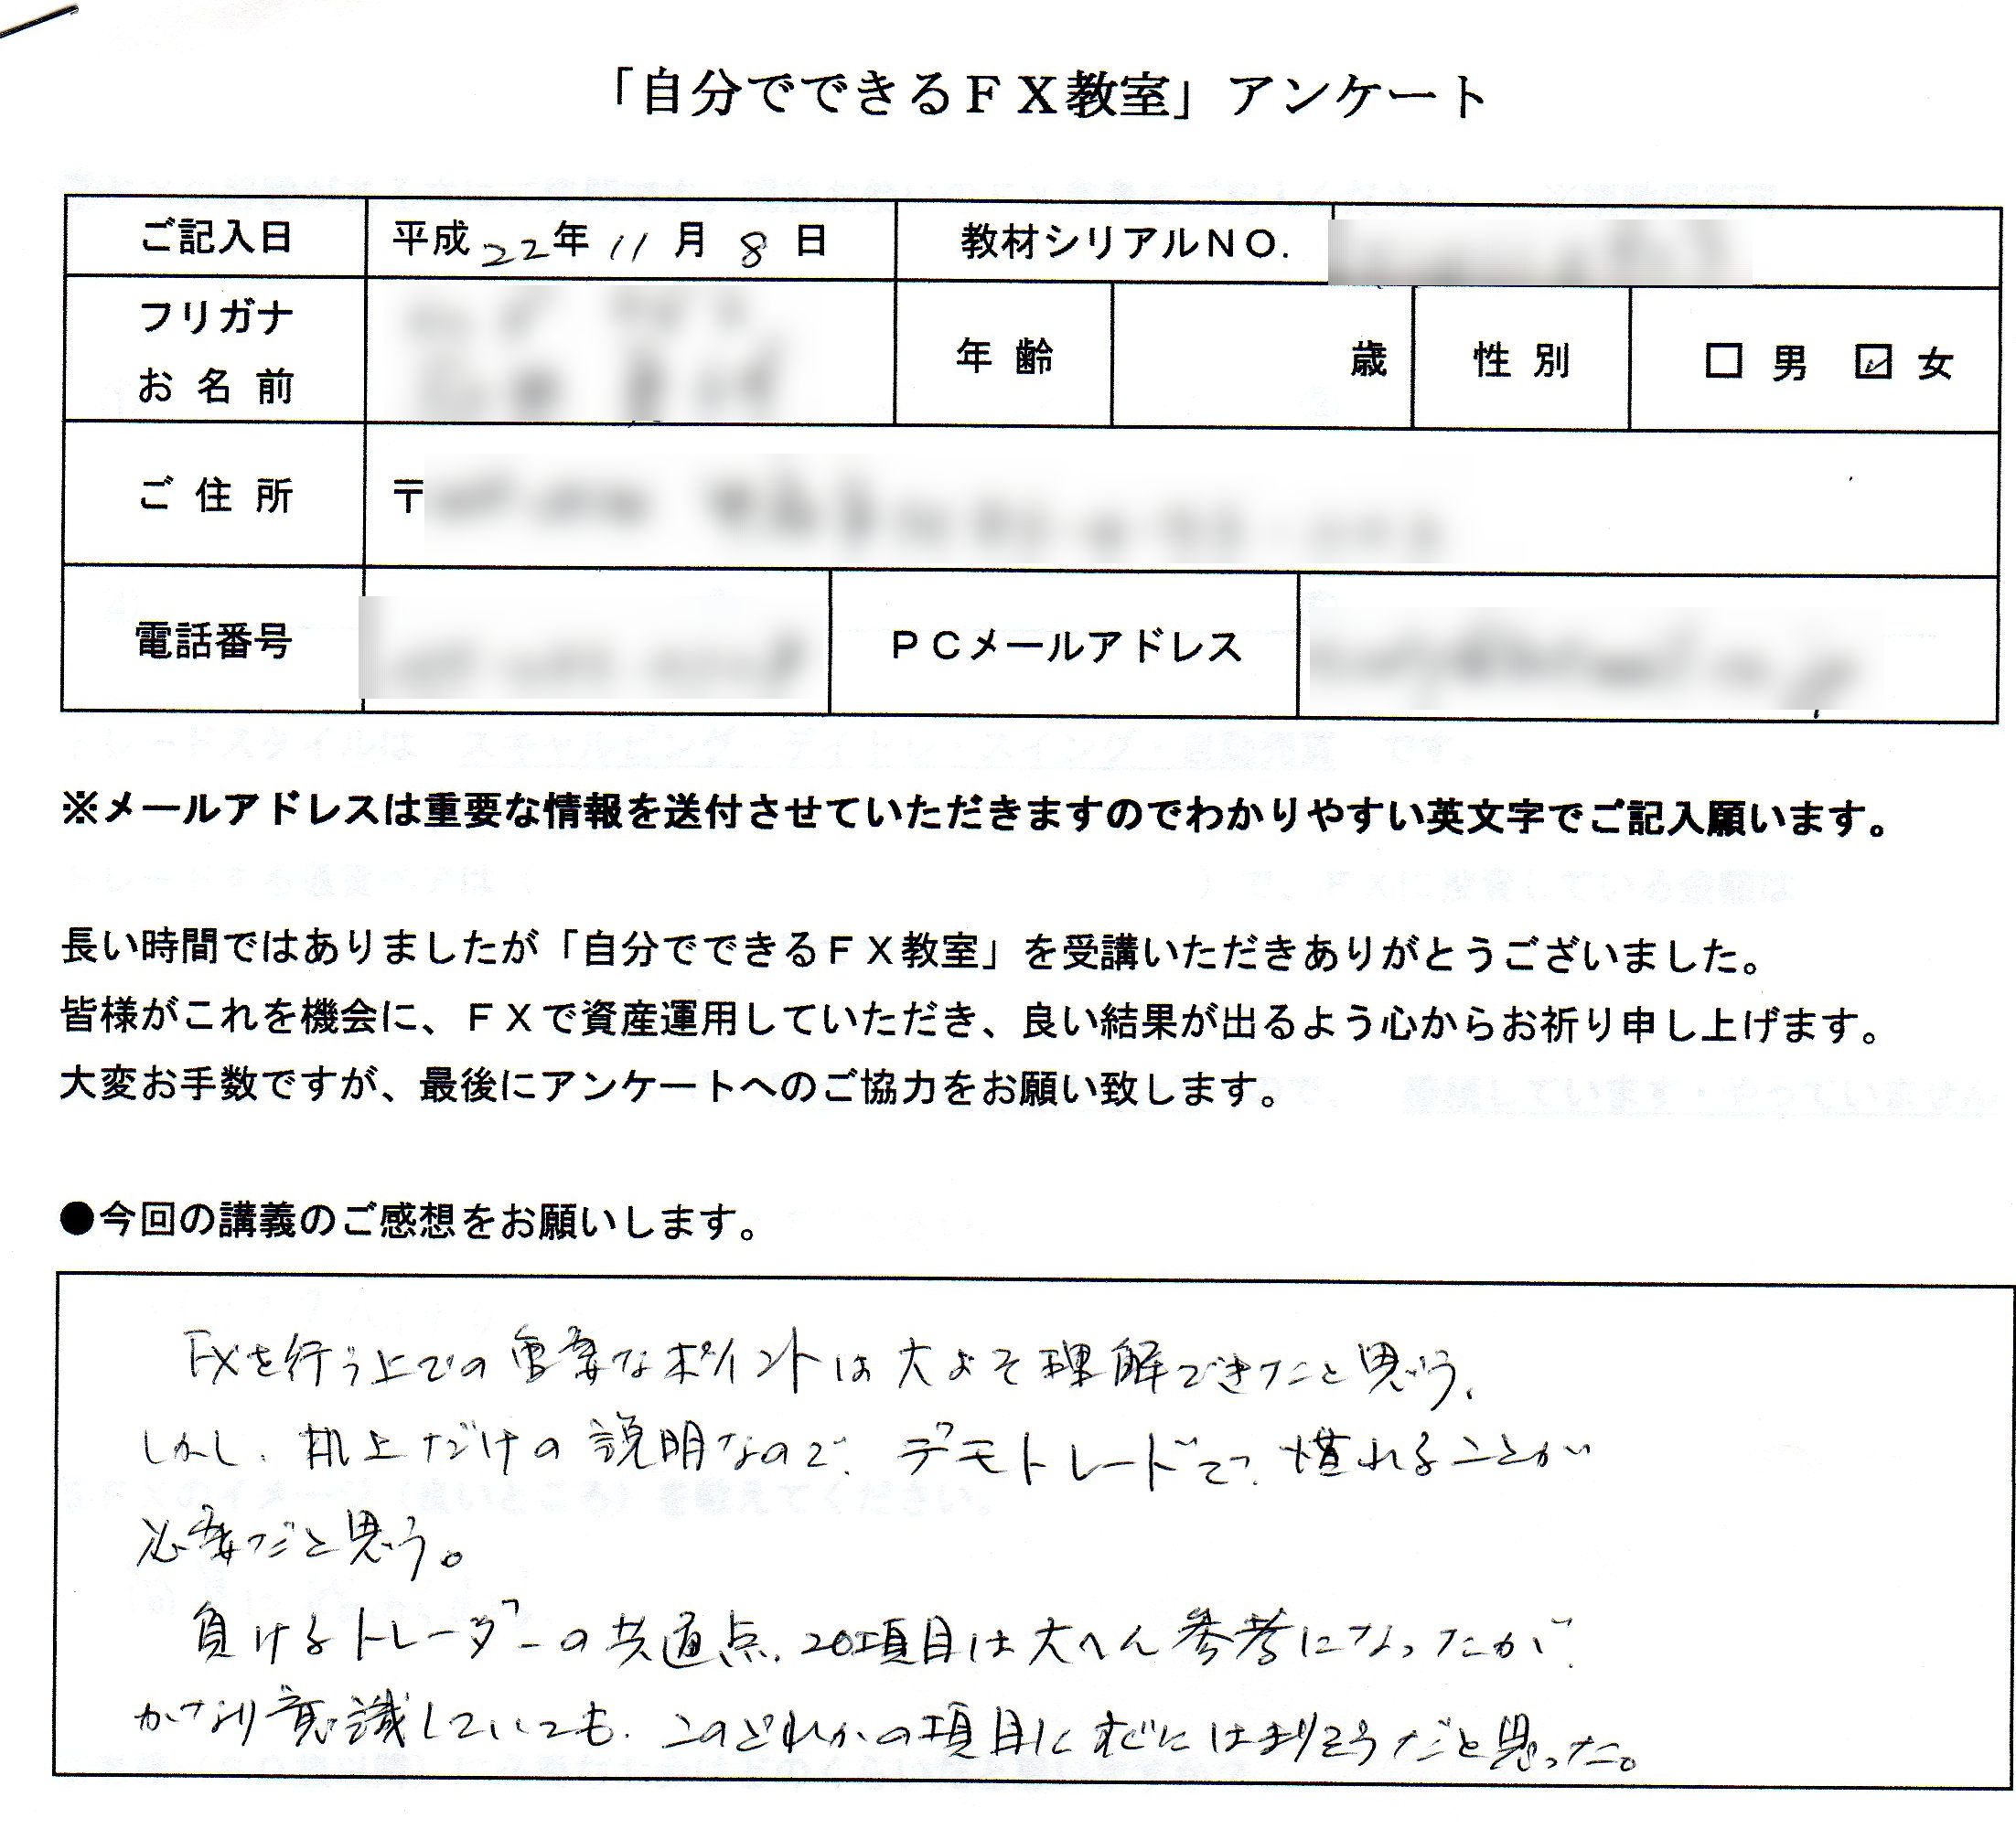 「自分でできるＦＸ教室」アンケート
ご記入日 平成22年11月8日 教材シリアルＮＯ.
フリガナ
お名前 年齢 歳 性別 □男 ☑女
ご住所 〒
電話番号 ＰＣメールアドレス
※メールアドレスは重要な情報を送付させていただきますのでわかりやすい英文字でご記入願います。
長い時間ではありましたが「自分でできるＦＸ教室」を受講いただきありがとうございました。
皆様がこれを機会に、ＦＸで資産運用していただき、良い結果が出るよう心からお祈り申し上げます。
大変お手数ですが、最後にアンケートへのご協力をお願い致します。
●今回の講義のご感想をお願いします。
FXを行う上での重要なポイントは大よそ理解できたと思う、
しかし、机上だけの説明なので、デモトレードで、慣れることが
必要だと思う。
負けるトレーダーの共通点、20項目は大へん参考になったが、
かなり意識していても、このどれかの項目にすぐにはまりそうだと思った。